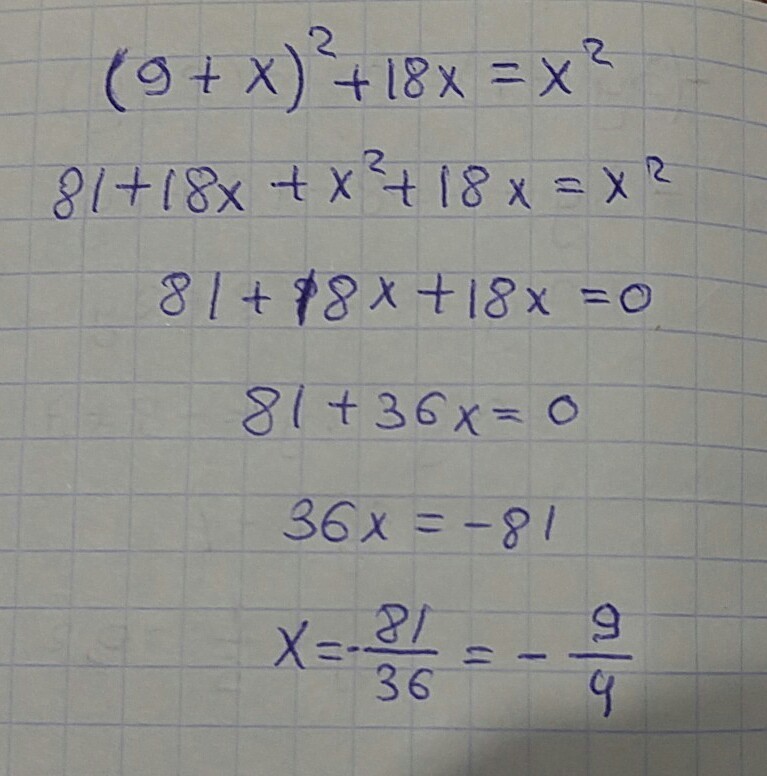 (9 + x)² + 18x = x²
81 + 18x + x² + 18x = x²
81 + 18x + 18x = 0
81 + 36x = 0
36x = -81
x = -81/36 = -9/4